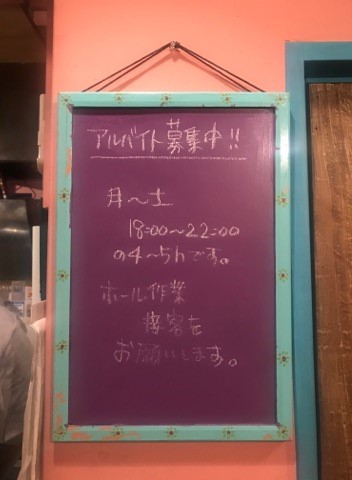 アルバイト募集中!!
月〜土
18:00〜22:00
の4〜5hです。
ホール作業
接客を
お願いします。